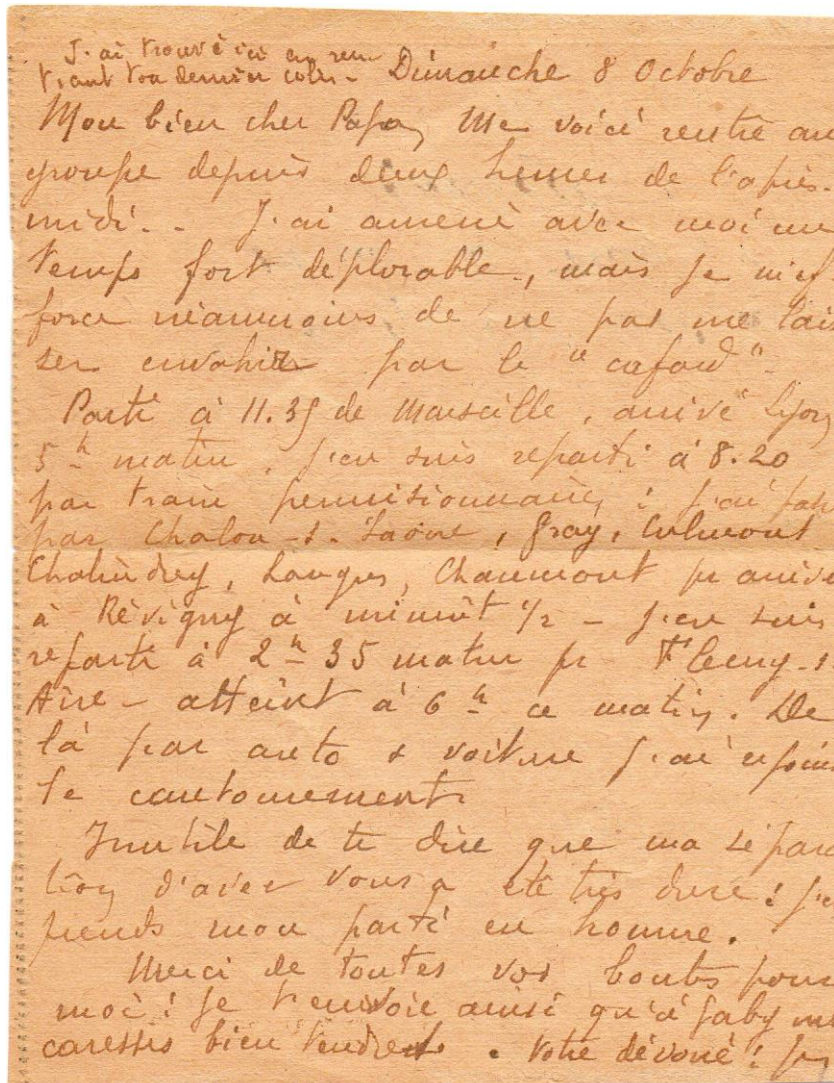 J'ai trouvé ici en ren
trant ton dernier colis - Dimanche 8 Octobre
Mon bien cher Papa, Me voici rentré au
groupe depuis deux heures de l'après-
midi. - J'ai amené avec moi un
temps fort déplorable, mais je m'ef
force néanmoins de ne pas me lais
ser envahir par le "cafard".
Parti à 11.35 de Marseille, arrivé Lyon
5h matin, j'en suis reparti à 8.20
par train permissionnaires : j'ai
par Chalon-s-Saône, Gray, Culmont
Chalindrey, Langres, Chaumont pr arriver
à Révigny à minuit 1/2 - j'en suis
reparti à 2h 35 matin pr Fleury-s
Aire - atteint à 6h ce matin. De
là par auto & voiture j'ai rejoint
le cantonnement.
Inutile de te dire que ma sépara
tion d'avec vous a été très dure : j'e
prends mon parti en homme.
Merci de toutes vos bontés pour
moi : je t'envoie ainsi qu'à Gaby m
caresses bien tendres. Votre dévoué :